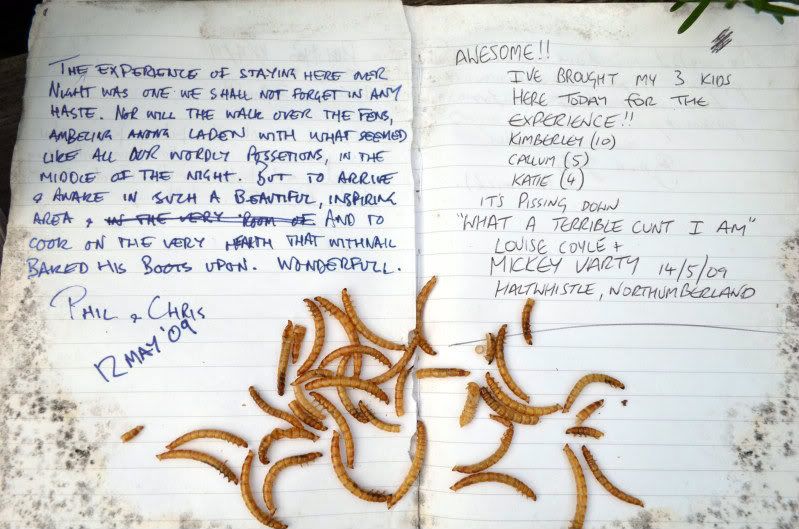 THE EXPERIENCE OF STAYING HERE OVER
NIGHT WAS ONE WE SHALL NOT FORGET IN ANY
HASTE. NOR WILL THE WALK OVER THE FENS,
AMBELING AMONG LADEN WITH WHAT SEEMED
LIKE ALL OUR WORDLY POSSETIONS, IN THE
MIDDLE OF THE NIGHT. BUT TO ARRIVE
& AWAKE IN SUCH A BEAUTIFUL, INSPIRING
AREA & IN THE VERY ROOM OF AND TO
COOK ON THE VERY HEARTH THAT WITHNAIL
BAKED HIS BOOTS UPON. WONDERFULL.
PHIL & CHRIS
12 MAY '09
AWESOME!!
I'VE BROUGHT MY 3 KIDS
HERE TODAY FOR THE
EXPERIENCE!!
KIMBERLEY (10)
CALLUM (5)
KATIE (4)
IT'S PISSING DOWN
"WHAT A TERRIBLE CUNT I AM"
LOUISE COYLE +
MICKEY VARTY 14/5/09
HALTWHISTLE, NORTHUMBERLAND